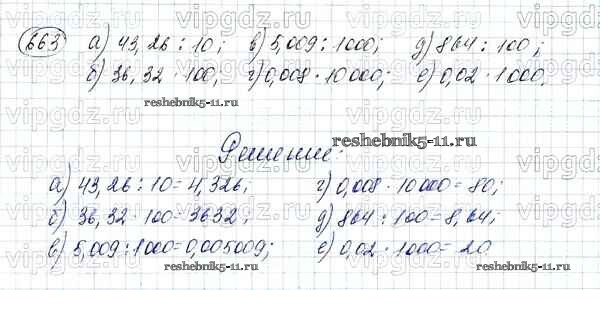 663 а) 43,26 : 10; в) 5,009 : 1000; д) 864 : 100;
б) 36,32 · 100; г) 0,008 · 10000; е) 0,02 · 1000.
reshebnik5-11.ru
reshebnik5-11.ru
Решение:
а) 43,26 : 10 = 4,326; г) 0,008 · 10000 = 80;
б) 36,32 · 100 = 3632; д) 864 : 100 = 8,64;
в) 5,009 : 1000 = 0,005009; е) 0,02 · 1000 = 20
reshebnik5-11.ru
reshebnik5-11.ru